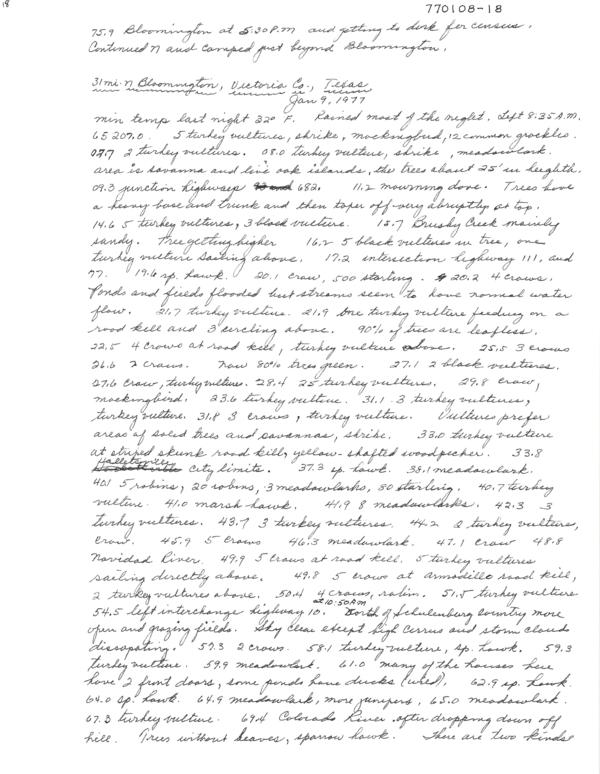 18
770108-18
75.9 Bloomington at 5:30 P.M and getting to dark for census.
Continued N and camped just beyond Bloomington.
31 mi. N Bloomington, Victoria Co., Texas
Jan 9, 1977
min temp last night 32° F. Rained most of the night. Left 8:35 A.M.
65207.0. 5 turkey vultures, shrike, mockingbird, 12 common grackles.
07.7 2 turkey vultures. 08.0 turkey vulture, shrike, meadowlark.
area is savanna and live oak islands, the trees about 25' in heighth.
09.3 junction highways 682. 11.2 mourning dove. Trees have
a heavy base and trunk and then taper off very abruptly at top.
14.6 5 turkey vultures, 3 black vulture. 15.7 Brushy Creek mainly
sandy. Tree getting higher 16.2 5 black vultures in tree, one
turkey vulture sailing above. 17.2 intersection highway 111, and
77. 19.6 sp. hawk. 20.1 craw, 500 starling. 20.2 4 crows.
Ponds and fields flooded but streams seem to have normal water
flow. 21.7 turkey vulture. 21.9 One turkey vulture feeding on a
road kill and 3 circling above. 90% of trees are leafless.
22.5 4 crows at road kill, turkey vulture above. 25.5 3 crows
26.6 2 craws. Now 80% trees green. 27.1 2 black vultures.
27.6 Craw, turkey vulture. 28.4 25 turkey vultures. 29.8 craw,
mockingbird. 23.6 turkey vulture. 31.1 3 turkey vultures,
turkey vulture. 31.8 3 crows, turkey vulture. Vultures prefer
areas of solid trees and savannas, shrike. 33.0 turkey vulture
at striped skunk road kill, yellow-shafted woodpecker. 33.8
Halletsville city limits. 37.3 sp. hawk. 38.1 meadowlark.
40.1 5 robins, 20 robins, 3 meadowlarks, 80 starling. 40.7 turkey
vulture. 41.0 marsh hawk. 41.9 8 meadowlarks. 42.3 3
turkey vultures. 43.7 3 turkey vultures. 44.2 2 turkey vultures,
crow. 45.9 5 crows 46.3 meadowlark. 47.1 craw 48.8
Navidad River. 49.9 5 crows at road kill. 5 turkey vultures
sailing directly above. 49.8 5 crow at armadillo road kill,
2 turkey vultures above. 50.4 4 crows, robin. 51.5 turkey vulture
54.5 left interchange highway 10. at 10:50 AM North of Schulenburg country more
open and grazing fields. Sky clear except high Cerrus and storm clouds
dissopating. 57.3 2 crows. 58.1 turkey vulture, sp. hawk. 59.3
turkey vulture. 59.9 meadowlark. 61.0 many of the houses here
have 2 front doors, some ponds have ducks. 62.9 sp. hawk
64.0 sp. hawk. 64.9 meadowlark, more junipers, 65.0 meadowlark.
67.3 turkey vulture. 69.4 Colorado River after dropping down off
hill. Trees without leaves, sparrow hawk. There are two kinds